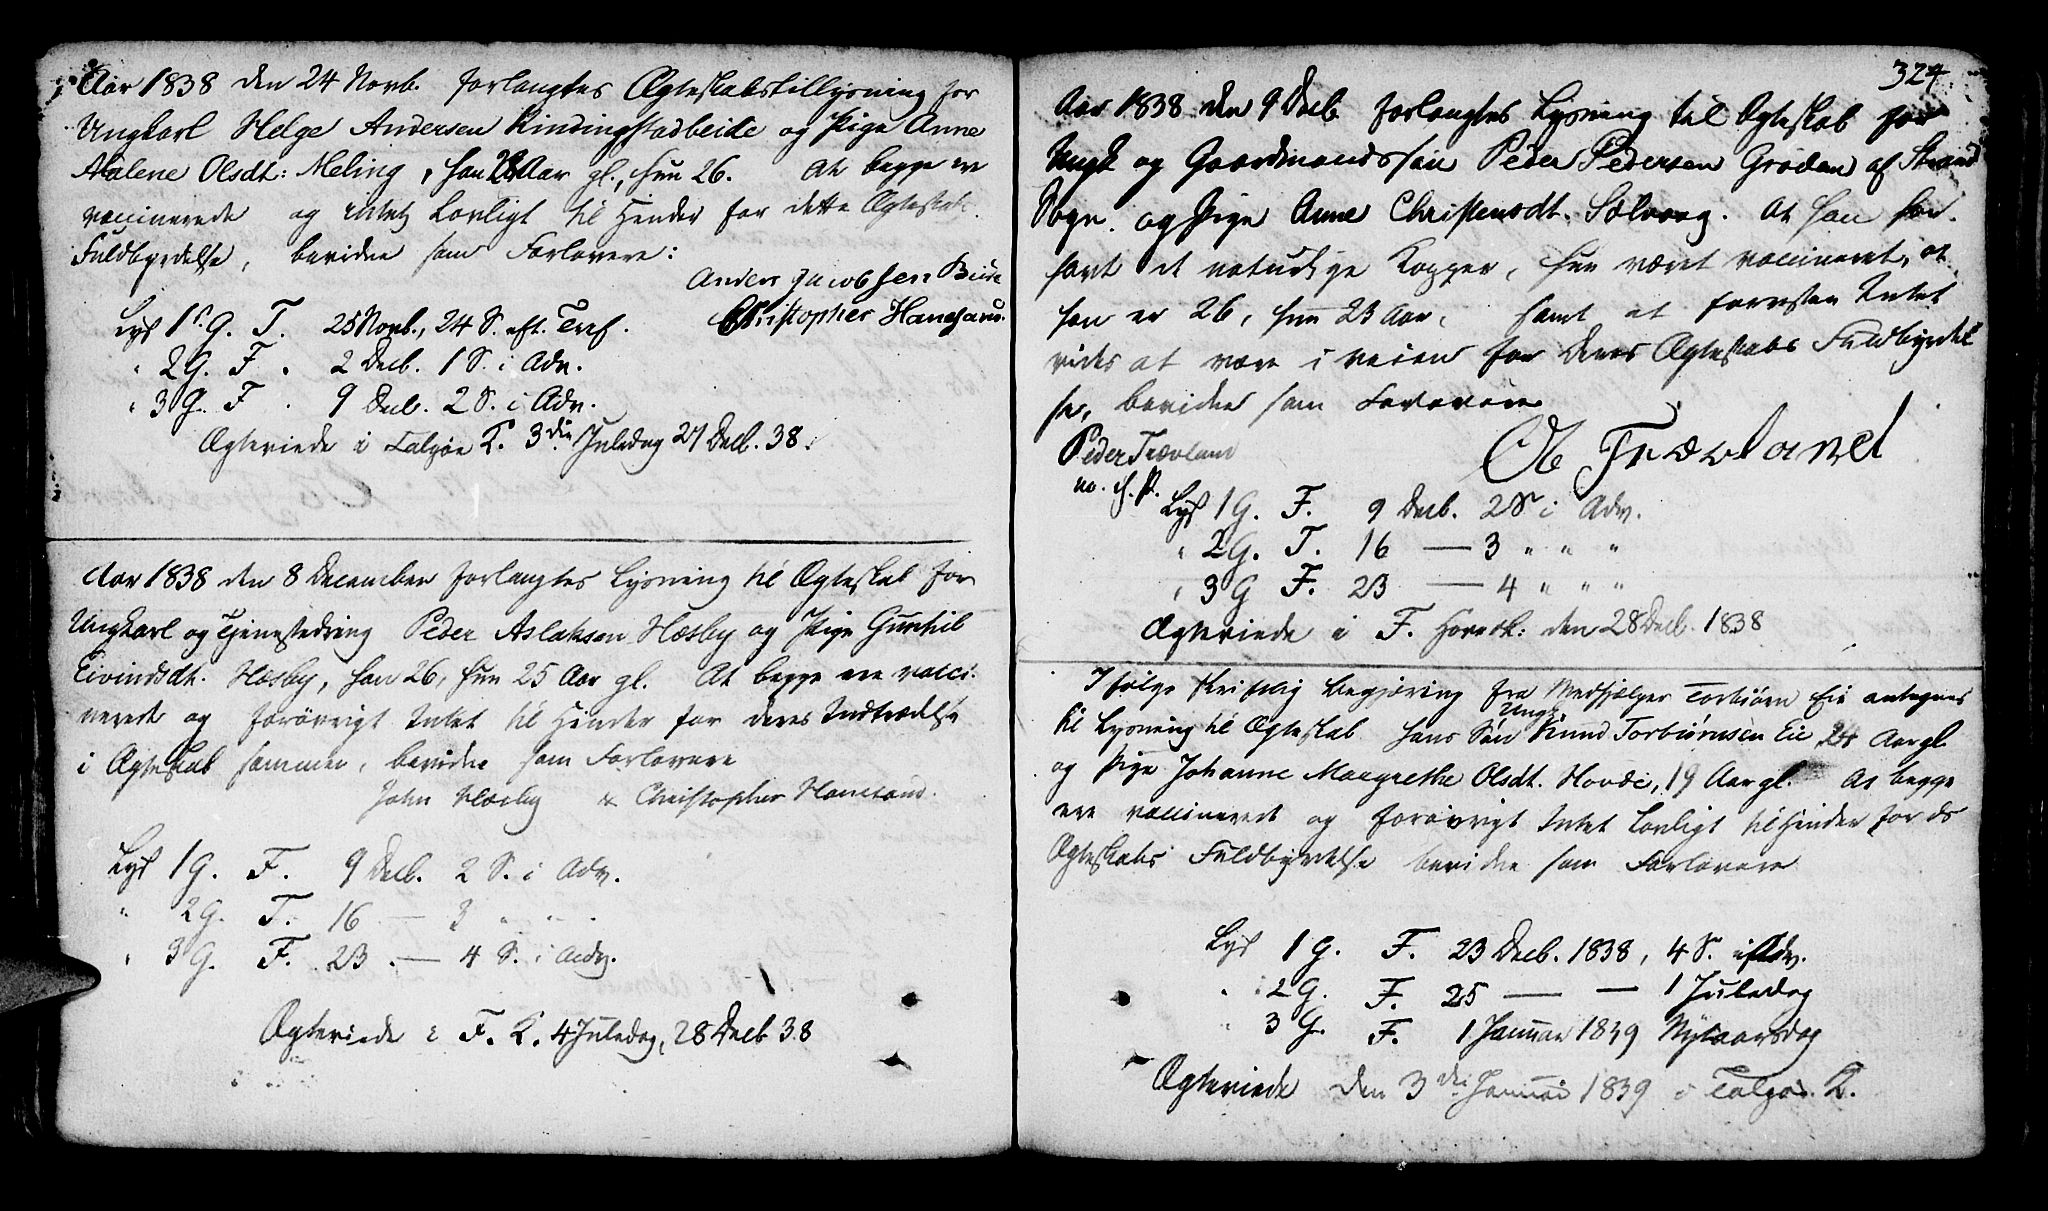 Aar 1838 den 24 Novb. forlangtes Ægteskabstillysning for
Ungkarl Helge Andersen Kindingstadbeide og Pige Anne
Malene Olsdt: Meling, han 28 Aar gl., hun 26. At begge ere
vaccinerede og intet Lovligt til Hinder for dette Ægteskab.
Fuldbyrdelse, bevidne som Forlovere:
Anders Jacobsen
Christopher Hanesand.
Lyst 1ste G. T. 25 Novb., 24 S. eft. Tref.
" 2 G. F. 2 Decb. 1 S. i Adv.
" 3 G. F. 9 Decb. 2 S. i Adv.
Ægteviede i Talgøe K. 3die Juledag 27 Decb. 38.
Aar 1838 den 8 December forlangtes Lysning til Ægteskab for
Ungkarl og Tjenestedreng Peder Aslaksen Hæsby og Pige Gunhil
Eivindsdt. Hæsby, han 26, hun 25 Aar gl. At begge ere vacci:
nerede og forøvrigt Intet til Hinder for deres Indtrædelse
i Ægteskab sammen, bevidne som Forlovere
John Hæsby & Christopher Hanesand.
Lyst 1 G. F. 9 Decb. 2 S. i Adv.
" 2 G. T. 16 — 3 " " .
" 3 G. F. 23 — 4 S. i Adv.
Ægteviede i F. K. 4 Juledag, 28 Decb 38
324
Aar 1838 den 9 Decb forlangtes Lysning til Ægteskab for
Ungk og Gaardmandssøn Peder Pedersen Grødem af Strand
Sogn. og Pige Anne Christensdt. Solvaag. At han har
havt de naturlige Kopper, hun været vaccineret, at
han er 26, hun 23 Aar, samt at forresten Intet
vides at være i veien for deres Ægteskabs Fuldbyrdel
se, bevidne som Forlovere
Peder Trævland
m. f. P.
Ole Trævland
Lyst 1 G. F. 9 Decb. 2 S i Adv.
" 2 G. T. 16 — 3 " " "
" 3 G F. 23 — 4 " " "
Ægteviede i F. Hovedk: den 28 Decb. 1838
Ifølge skriftlig Begjæring fra Medhjælper Torbiørn Eie antegnes
til Lysning til Ægteskab hans Søn Ungk Knud Torbiørnsen Eie 24 Aar gl
og Pige Johanne Margrethe Olsdt. Hovde, 19 Aar gl. At begge
ere vaccinerede og forøvrigt Intet Lovligt til Hinder for ds
Ægteskabs Fuldbyrdelse bevidne som Forlovere
Lyst 1 G. F. 23 Decb. 1838, 4 S. i Adv.
" 2 G. F. 25 — — 1 Juledag
" 3 G. F. 1 Januar 1839 Nytaarsdag
Ægteviede den 3die Januar 1839 i Talgøe K.